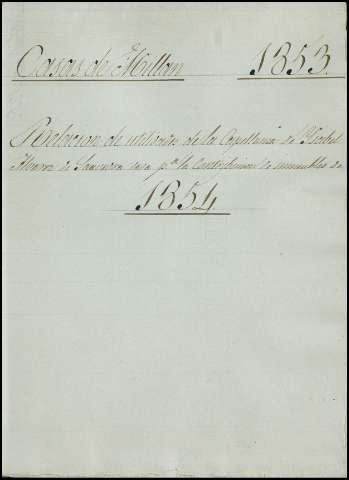 Casas de Millan 1853.
Relacion de utilidades de la Capellania de Ysabel
Alvarez de para p.ª la Contribucion de inmuebles de
1854